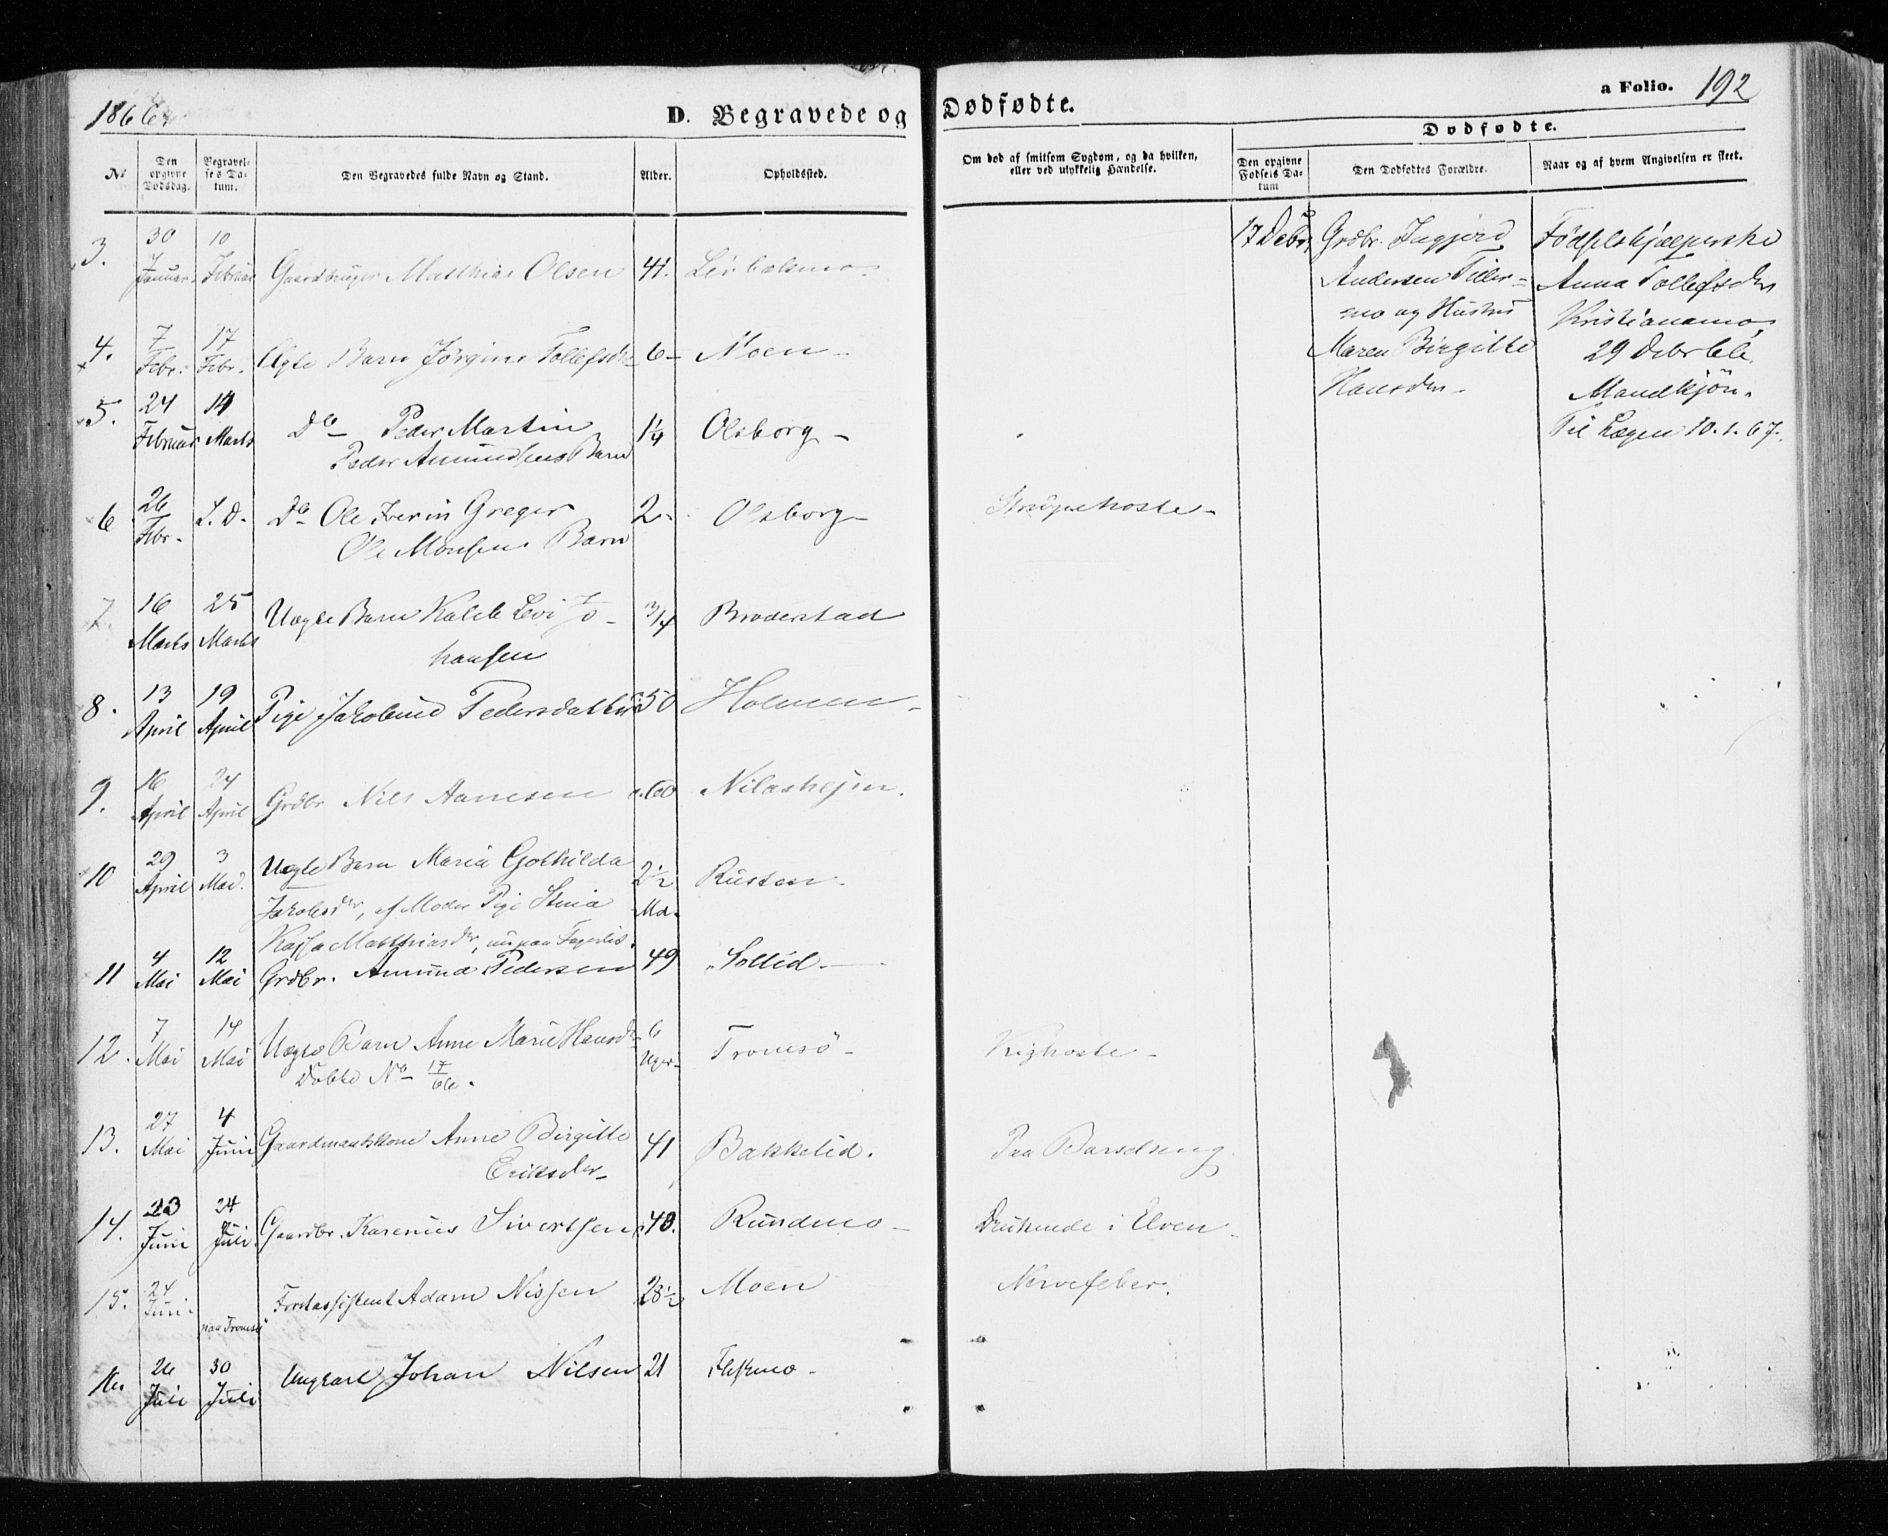 1866.
D. Begravede og Dødfødte.
a Folio. 192
Dødfødte.
No
Den opgivne Dødsdag.
Begravelses Datum.
Den Begravedes fulde Navn og Stand.
Alder.
Opholdssted.
Om død af smitsom Sygdom, og da hvilken, eller ved ulykkelig Hændelse.
Den opgivne Fødsels Datum
Den Dødfødtes Forældre.
Naar og af hvem Angivelsen er skeet.
3. 30 Januar 10 Februar Gaardbruger Matthias Olsen 41. 
17 Debr. Grdbr. Ingjerd
Andersen Tiller-
mo og Hustru
Maren Birgitte
Hansdtr
Fødselshjælperske
Anna Tollefsdtr
Kristianamo,
29 Debr
Mandkjøn.
Til Lægen 10.1.67.
4. 7 Febr. 17 Febr. Ægte Barn Jørgine Tollefsdtr 6 Moen
5. 24 Februar 14 Marts Do Peder Martin 1¼ Olsborg
Peder Amundsens Barn
6 26 Febr. S. D. Do Ole Iverin Greger 2 Olsborg Strubehoste
Ole Monsens Barn
7. 16 Marts 25 Marts Uægte Barn Kaleb Levi Jo- 3/4 Broderstad
hansen
8. 13 April 19 April Pige Jakobine Pedersdatter 50 Holmen
9. 16 April 24 April Grdbr Nils Aanesen 60
10 29 April 3 Mai. Uægte Barn Maria Gothilda 2½ Md. Russen
Jakobsdtr, af Moder Pige Stina
Kajsa Matthiasdtr, nu paa Fagerlid.
11 4 Mai 12 Mai Grdbr. Amund Pedersen 49 Sollid
12. 7 Mai 14 Mai Uægte Barn Anne Marie Hansdtr 6 Uger Tromsö Kighoste
Döbte No 17/66.
13. 27 Mai 4 Juni Gaardmandskone Anne Birgitte 41 Bakkelid. Paa Barselseng
Eriksdtr
14. 23 Juni 24 Juli Gaardbr. Karenius Sivertsen 40. Rundmo Druknede i Elven
15. 24 Juni paa Tromsö Forstassistent Adam Nissen 28½ Moen Nervefeber.
16. 26 Juli 30 Juli Ungkarl Johan Nilsen 21